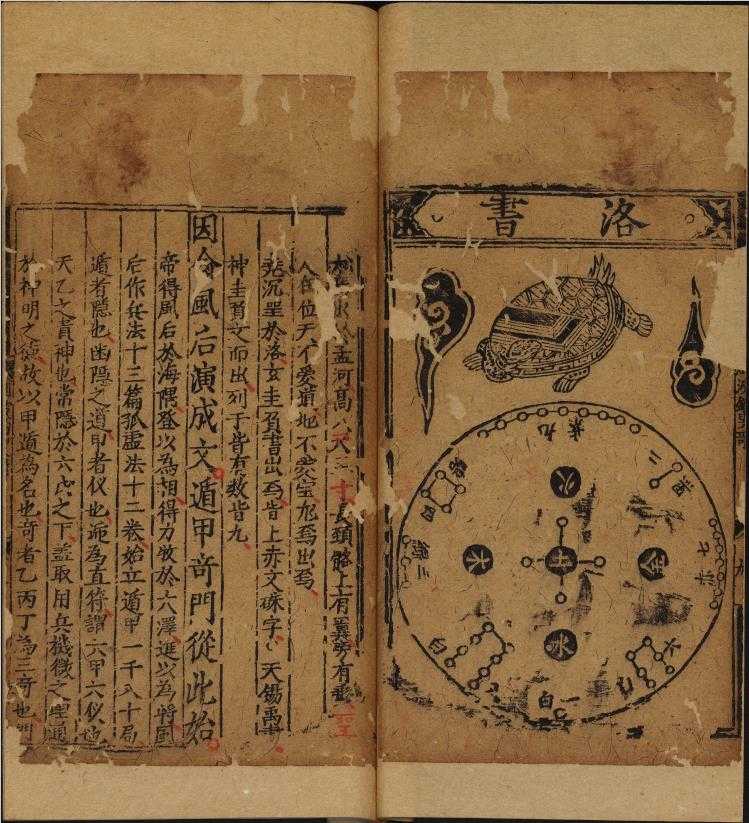 洛書
九紫
二
七
四
三
火
木
土
金
水
六
一白
白
孟河高八尺五寸長頸骼上有翼旁有垂
人在位天不愛道地不愛宝龙馬出焉
沉璧於洛玄圭負書出焉背上赤文硃字天錫禹
神圭負文而出列于背有数皆九
因命風后演成文遁甲奇門從此始
帝得風后於海隅登以為相得力牧於大澤進以為將風
后作法十三篇狐虛法十二卷始立遁甲一千八十局
遁者隱也幽隱之道甲者仪也派為直符謂六甲六仪也
天乙之貴神也常隱於六戊之下盖取用兵機徵之理通
於神明之德故以甲遁為名也奇者乙丙丁為三奇也門